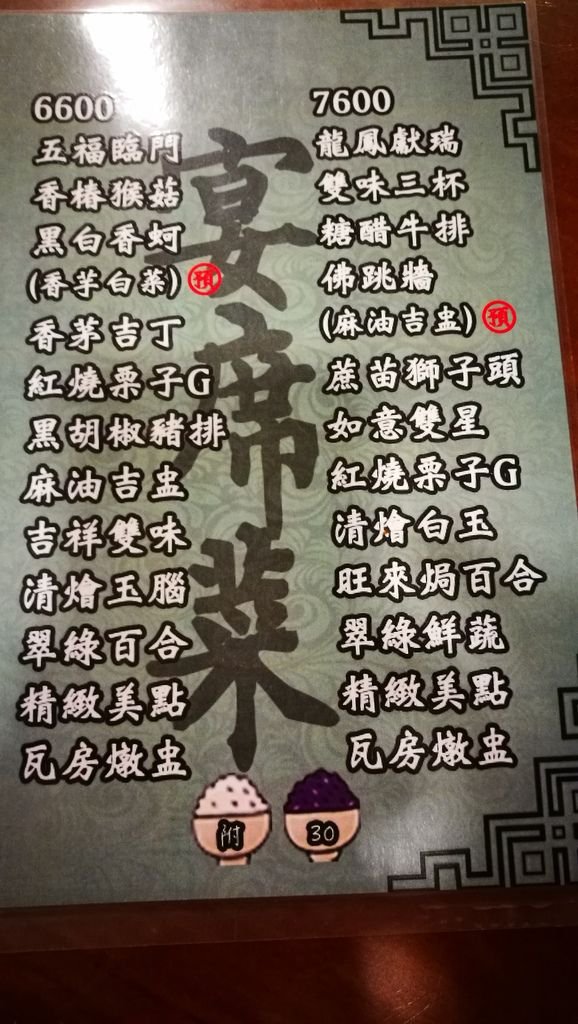 宴席菜
6600
五福臨門
香椿猴菇
黑白香蚵
(香芋白菜) 預
香茅吉丁
紅燒栗子G
黑胡椒豬排
麻油吉盅
吉祥雙味
清燴玉腦
翠綠百合
精緻美點
瓦房燉盅
7600
龍鳳獻瑞
雙味三杯
糖醋牛排
佛跳牆
(麻油吉盅) 預
蔗苗獅子頭
如意雙星
紅燒栗子G
清燴白玉
旺來焗百合
翠綠鮮蔬
精緻美點
瓦房燉盅
附
30